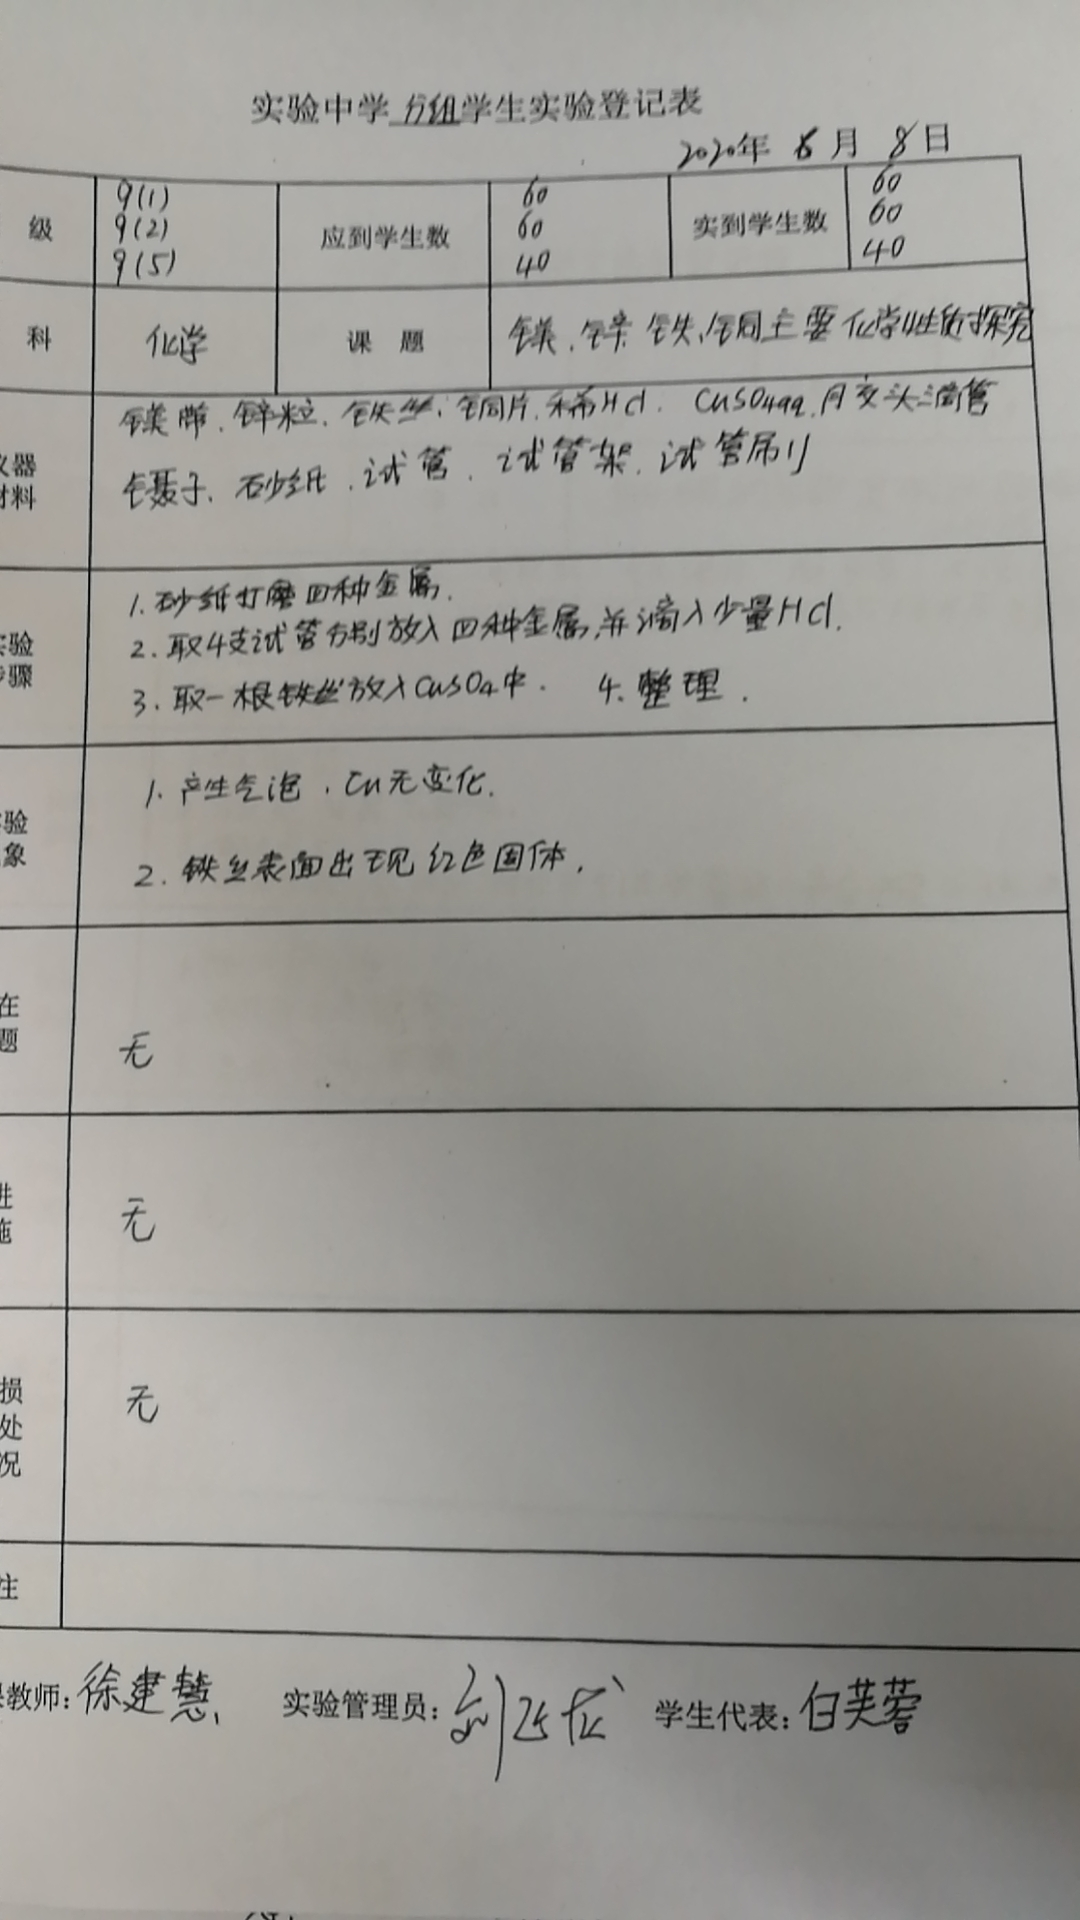 实验中学分组学生实验登记表
2020年 6月 8日
级 9(1) 9(2) 9(5) 应到学生数 60 60 40 实到学生数 60 60 40
科 化学 课题 镁、锌、铁、铜主要化学性质探究
仪器 镁带、锌粒、铁丝、铜片、稀HCl、CuSO4aq、胶头滴管
材料 镊子、砂纸、试管、试管架、试管刷
1.砂纸打磨四种金属.
实验 2.取4支试管分别放入四种金属,并滴入少量HCl.
步骤 3.取一根铁丝放入CuSO4中. 4.整理.
验 1.产生气泡,Cu无变化.
象 2.铁丝表面出现红色固体.
在
题 无
进
施 无
损
处 无
况
注
教师:徐建慧 实验管理员: 学生代表:白芙蓉